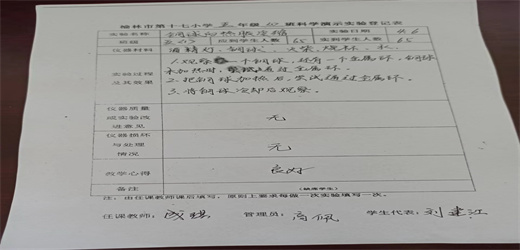 榆林市第十七小学 五 年级 (2) 班科学演示实验登记表
实验名称 钢球的热胀冷缩 实验日期 4.6
班级 五(2) 应到学生人数 65 实到学生人数 65
仪器材料 酒精灯、钢球、火柴、烧杯、水
实验过程及其效果
1.观察一个钢球,还有一个金属环,钢球
未加热时,通过金属环。
2.把钢球加热后,尝试通过金属环。
3.将钢球冷却后观察。
仪器质量或实验改进意见 无
仪器损坏与处理情况 无
教学心得 良好
备注 (缺席学生)
注:由任课教师课后填写,原则上要求每做一次实验填写一次。
任课教师: 管理员:高佩 学生代表:刘建江